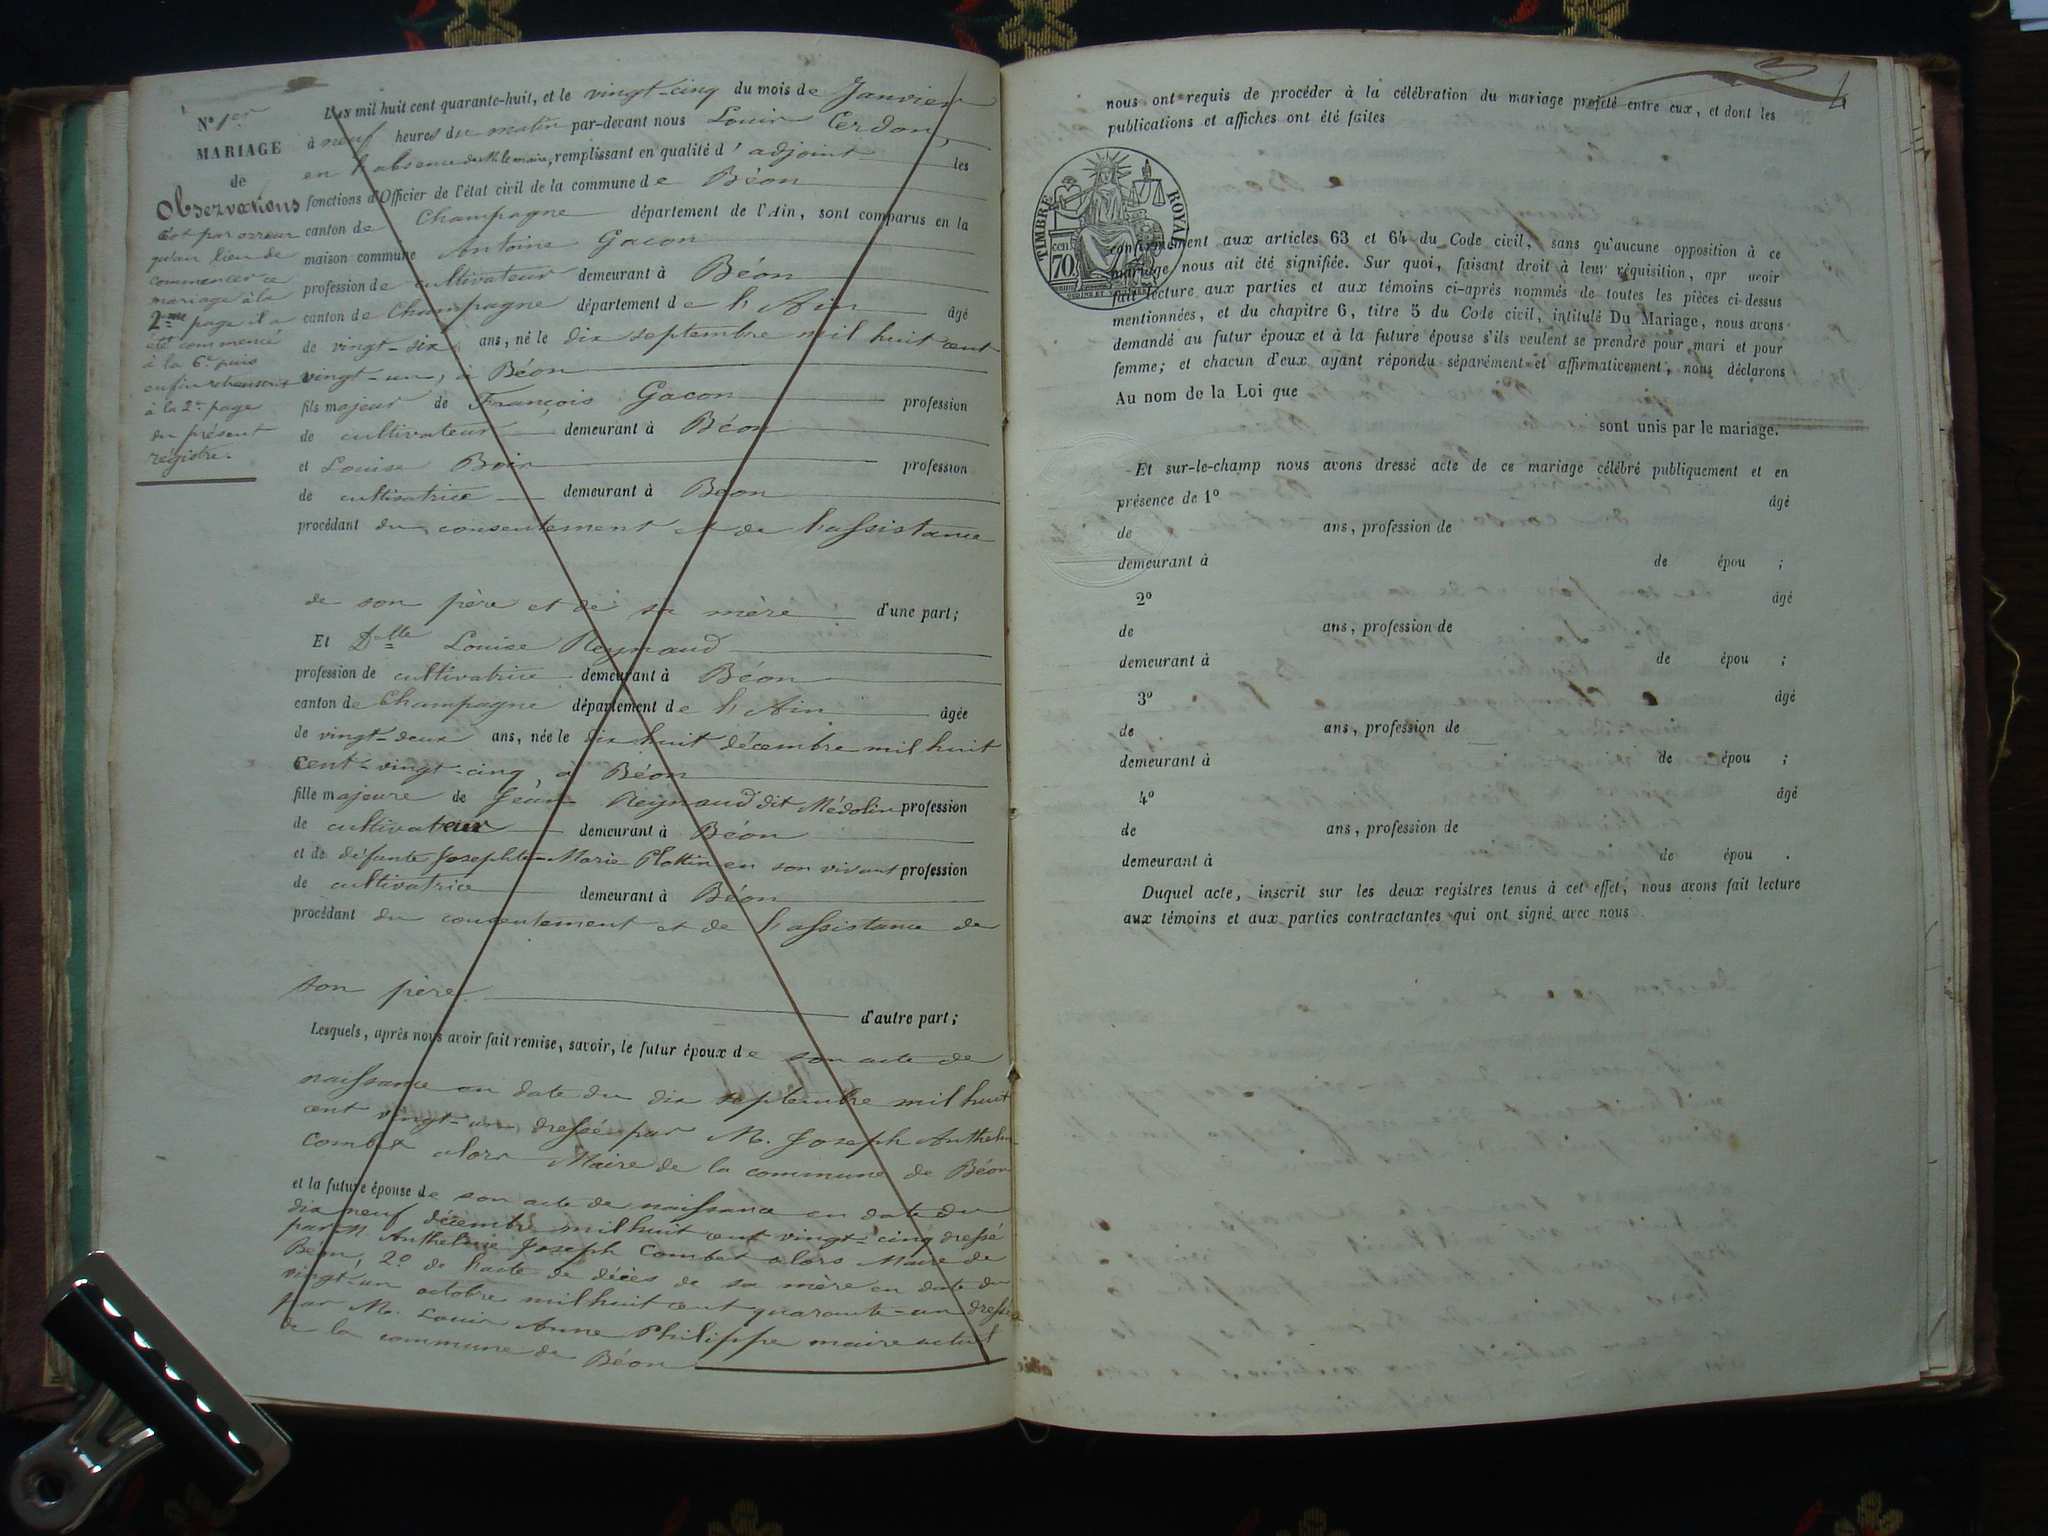 N° 1er
MARIAGE
de
Observations
c'est par erreur
qu'au lieu de
commencer ce
mariage à la
2me page il a
été commencé
à la 6e puis
enfin retranscrit
à la 2e page
du présent
régistre.
L'an mil huit cent quarante-huit, et le vingt-cinq du mois de Janvier
à neuf heures du matin par-devant nous Louis Cerdon,
en l'absence de Mr le maire, remplissant en qualité d'adjoint les
fonctions d'Officier de l'état civil de la commune de Béon
canton de Champagne département de l'Ain, sont comparus en la
maison commune Antoine Gacon
profession de cultivateur demeurant à Béon
canton de Champagne département de l'Ain âgé
de vingt-six ans, né le dix septembre mil huit cent
vingt-un, à Béon
fils majeur de François Gacon profession
de cultivateur demeurant à Béon
et Louise Boin profession
de cultivatrice demeurant à Béon
procédant du consentement et de l'assistance
de son père et de sa mère d'une part;
Et Dlle Louise Reynaud
profession de cultivatrice demeurant à Béon
canton de Champagne département de l'Ain âgée
de vingt-deux ans, née le dix huit décembre mil huit
cent-vingt-cinq, à Béon
fille majeure de Jean Reynaud dit Médolin profession
de cultivateur demeurant à Béon
et de défunte Josephte-Marie Plottin en son vivant profession
de cultivatrice demeurant à Béon
procédant du consentement et de l'assistance de
son père d'autre part;
Lesquels, après nous avoir fait remise, savoir, le futur époux de son acte de
naissance en date du dix septembre mil huit
cent vingt-un dressé par M. Joseph Anthelm
Combet alors Maire de la commune de Béon
et la future épouse de son acte de naissance en date du
dix neuf décembre mil huit cent vingt-cinq dressé
par M. Anthelme Joseph Combet alors Maire de
Béon, 2° de l'acte de décès de sa mère en date du
vingt-un octobre mil huit cent quarante-un dressé
par M. Louis Anne Philippe maire actuel
de la commune de Béon
nous ont requis de procéder à la célébration du mariage projeté entre eux, et dont les
publications et affiches ont été faites
TIMBRE ROYAL
CEN
70
conformément aux articles 63 et 64 du Code civil, sans qu'aucune opposition à ce
mariage nous ait été signifiée. Sur quoi, faisant droit à leur réquisition, apr avoir
fait lecture aux parties et aux témoins ci-après nommés de toutes les pièces ci-dessus
mentionnées, et du chapitre 6, titre 5 du Code civil, intitulé Du Mariage, nous avons
demandé au futur époux et à la future épouse s'ils veulent se prendre pour mari et pour
femme; et chacun d'eux ayant répondu séparément et affirmativement, nous déclarons
Au nom de la Loi que
sont unis par le mariage.
Et sur-le-champ nous avons dressé acte de ce mariage célébré publiquement et en
présence de 1° âgé
de ans, profession de
demeurant à de épou ;
2° âgé
de ans, profession de
demeurant à de épou ;
3° âgé
de ans, profession de
demeurant à de épou ;
4° âgé
de ans, profession de
demeurant à de épou .
Duquel acte, inscrit sur les deux registres tenus à cet effet, nous avons fait lecture
aux témoins et aux parties contractantes qui ont signé avec nous